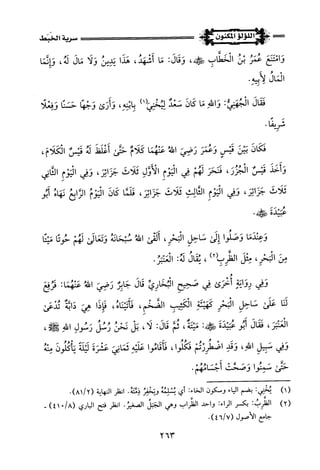 اللؤلؤ المكنون
سرية الخبط
وَامْتَنَعَ عُمَرُ بْنُ الْخَطَّابِ ﷺ، وَقَالَ: مَا أَشْهَدُ، هَذَا يَدِينُ وَلَا مَالَ لَهُ، وَإِنَّمَا
الْمَالُ لِأَبِيهِ.
فَقَالَ الْجُهَنِيُّ: وَاللهِ مَا كَانَ سَعْدٌ لِيُخْنِيَ(١) بِابْنِهِ، وَأَرَى وَجْهًا حَسَنًا وَفِعْلًا
شَرِيفًا.
فَكَانَ بَيْنَ قَيْسٍ وَعُمَرَ رَضِيَ اللهُ عَنْهُمَا كَلَامٌ حَتَّى أَغْلَظَ لَهُ قَيْسٌ الْكَلَامَ،
وَأَخَذَ قَيْسٌ الْجُزُرَ، فَنَحَرَ لَهُمْ فِي الْيَوْمِ الْأَوَّلِ ثَلَاثَ جَزَائِرَ، وَفِي الْيَوْمِ الثَّانِي
ثَلَاثَ جَزَائِرَ، وَفِي الْيَوْمِ الثَّالِثِ ثَلَاثَ جَزَائِرَ، فَلَمَّا كَانَ الْيَوْمُ الرَّابِعُ نَهَاهُ أَبُو
عُبَيْدَةَ.
وَعِنْدَمَا وَصَلُوا إِلَى سَاحِلِ الْبَحْرِ، أَلْقَى اللهُ سُبْحَانَهُ وَتَعَالَى لَهُمْ حُوتًا مَيْتًا
مِنَ الْبَحْرِ، مِثْلَ الظَّرِبِ(٢)، يُقَالُ لَهُ: الْعَنْبَرُ.
وَفِي رِوَايَةٍ أُخْرَى فِي صَحِيحِ الْبُخَارِيِّ قَالَ جَابِرٌ رَضِيَ اللهُ عَنْهُمَا: فَرُفِعَ
لَنَا عَلَى سَاحِلِ الْبَحْرِ كَهَيْئَةِ الْكَثِيبِ الضَّخْمِ، فَأَتَيْنَاهُ، فَإِذَا هِيَ دَابَّةٌ تُدْعَى
الْعَنْبَرَ، فَقَالَ أَبُو عُبَيْدَةَ: مَيْتَةٌ، ثُمَّ قَالَ: لَا، بَلْ نَحْنُ رُسُلُ رَسُولِ اللهِ ﷺ،
وَفِي سَبِيلِ اللهِ، وَقَدِ اضْطُرِرْتُمْ فَكُلُوا، فَأَقَامُوا عَلَيْهِ ثَمَانِيَ عَشْرَةَ لَيْلَةً يَأْكُلُونَ مِنْهُ
حَتَّى سَمِنُوا وَصَحَّتْ أَجْسَامُهُمْ.
(١) يُخْنِي: بضم الياء وسكون الخاء: أي يُسْلِمُهُ ويَخْفِرُ ذِمَّتَهُ. انظر النهاية (٨١/٢).
(٢) الظَّرِبُ: بكسر الراء: واحد الظراب وهي الجَبَلُ الصغيرُ. انظر فتح الباري (٤١٠/٨) -
جامع الأصول (٤٦/٧).
٢٦٣